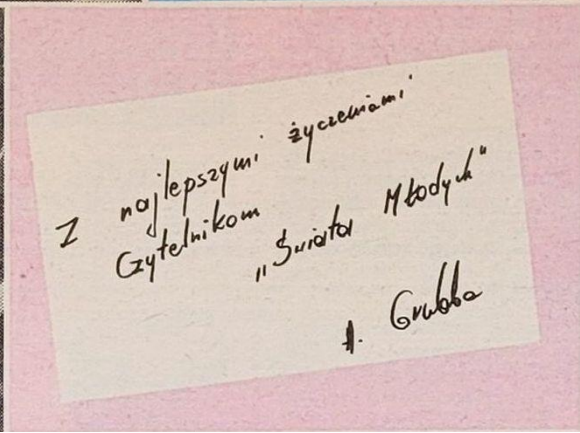 Z najlepszymi życzeniami
Czytelnikom
„Świata Młodych"
A. Grubba